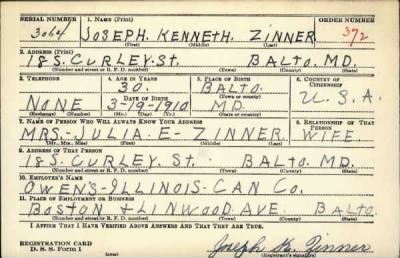 SERIAL NUMBER 1. NAME (Print) ORDER NUMBER
3064 JOSEPH. KENNETH. ZINNER 372
(First) (Middle) (Last)
2. ADDRESS (Print)
18 S. CURLEY. ST. BALTO. MD.
(Number and street or R. F. D. number) (Town) (County) (State)
3. TELEPHONE 4. AGE IN YEARS 5. PLACE OF BIRTH 6. COUNTRY OF CITIZENSHIP
30. BALTO.
DATE OF BIRTH (Town or county)
NONE 3-19-1910 MD. U.S.A.
(Exchange) (No.) (Mo.) (Day) (Yr.) (State or country)
7. NAME OF PERSON WHO WILL ALWAYS KNOW YOUR ADDRESS 8. RELATIONSHIP OF THAT PERSON
MRS.- JULIA E- ZINNER. WIFE.
(Mr., Mrs., Miss) (First) (Middle) (Last)
9. ADDRESS OF THAT PERSON
18 S. CURLEY. ST. BALTO. MD.
(Number and street or R. F. D. number) (Town) (County) (State)
10. EMPLOYER'S NAME
OWENS-ILLINOIS-CAN CO.
11. PLACE OF EMPLOYMENT OR BUSINESS
BOSTON & LINWOOD AVE BALTO.
(Number and street or R. F. D. number) (Town) (County) (State)
I AFFIRM THAT I HAVE VERIFIED ABOVE ANSWERS AND THAT THEY ARE TRUE.
REGISTRATION CARD
D. S. S. FORM 1 Joseph K. Zinner
(Registrant's signature)